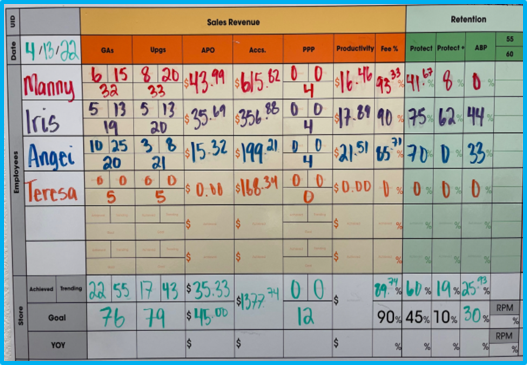 UID Sales Revenue Retention
Date 4/13/22 GAs Upgs APO Accs. PPP Productivity Fee % Protect Protect+ ABP 55
60
Employees
Manny 6 15 8 20 $43.99 $615.82 0 0 $16.46 93.33% 41.67% 8% 0%
32 33 4
Iris 5 13 5 13 $35.69 $356.88 0 0 $17.89 90% 75% 62% 44%
19 20 4
Angei 10 25 3 8 $15.32 $199.21 0 0 $21.51 85.71% 70% 0% 33%
20 21 4
Teresa 0 0 0 0 $0.00 $168.34 0 0 $0.00 0% 0% 0% 0%
5 5 0
$ $ $ % % % %
$ $ $ % % % %
Store
Achieved Trending 22 55 17 43 $35.33 $1377.74 0 0 $ 89.74% 60% 19% 25.93%
Goal 76 79 $45.00 12 90% 45% 10% 30% RPM
%
YOY $ $ $ % % % % RPM
%